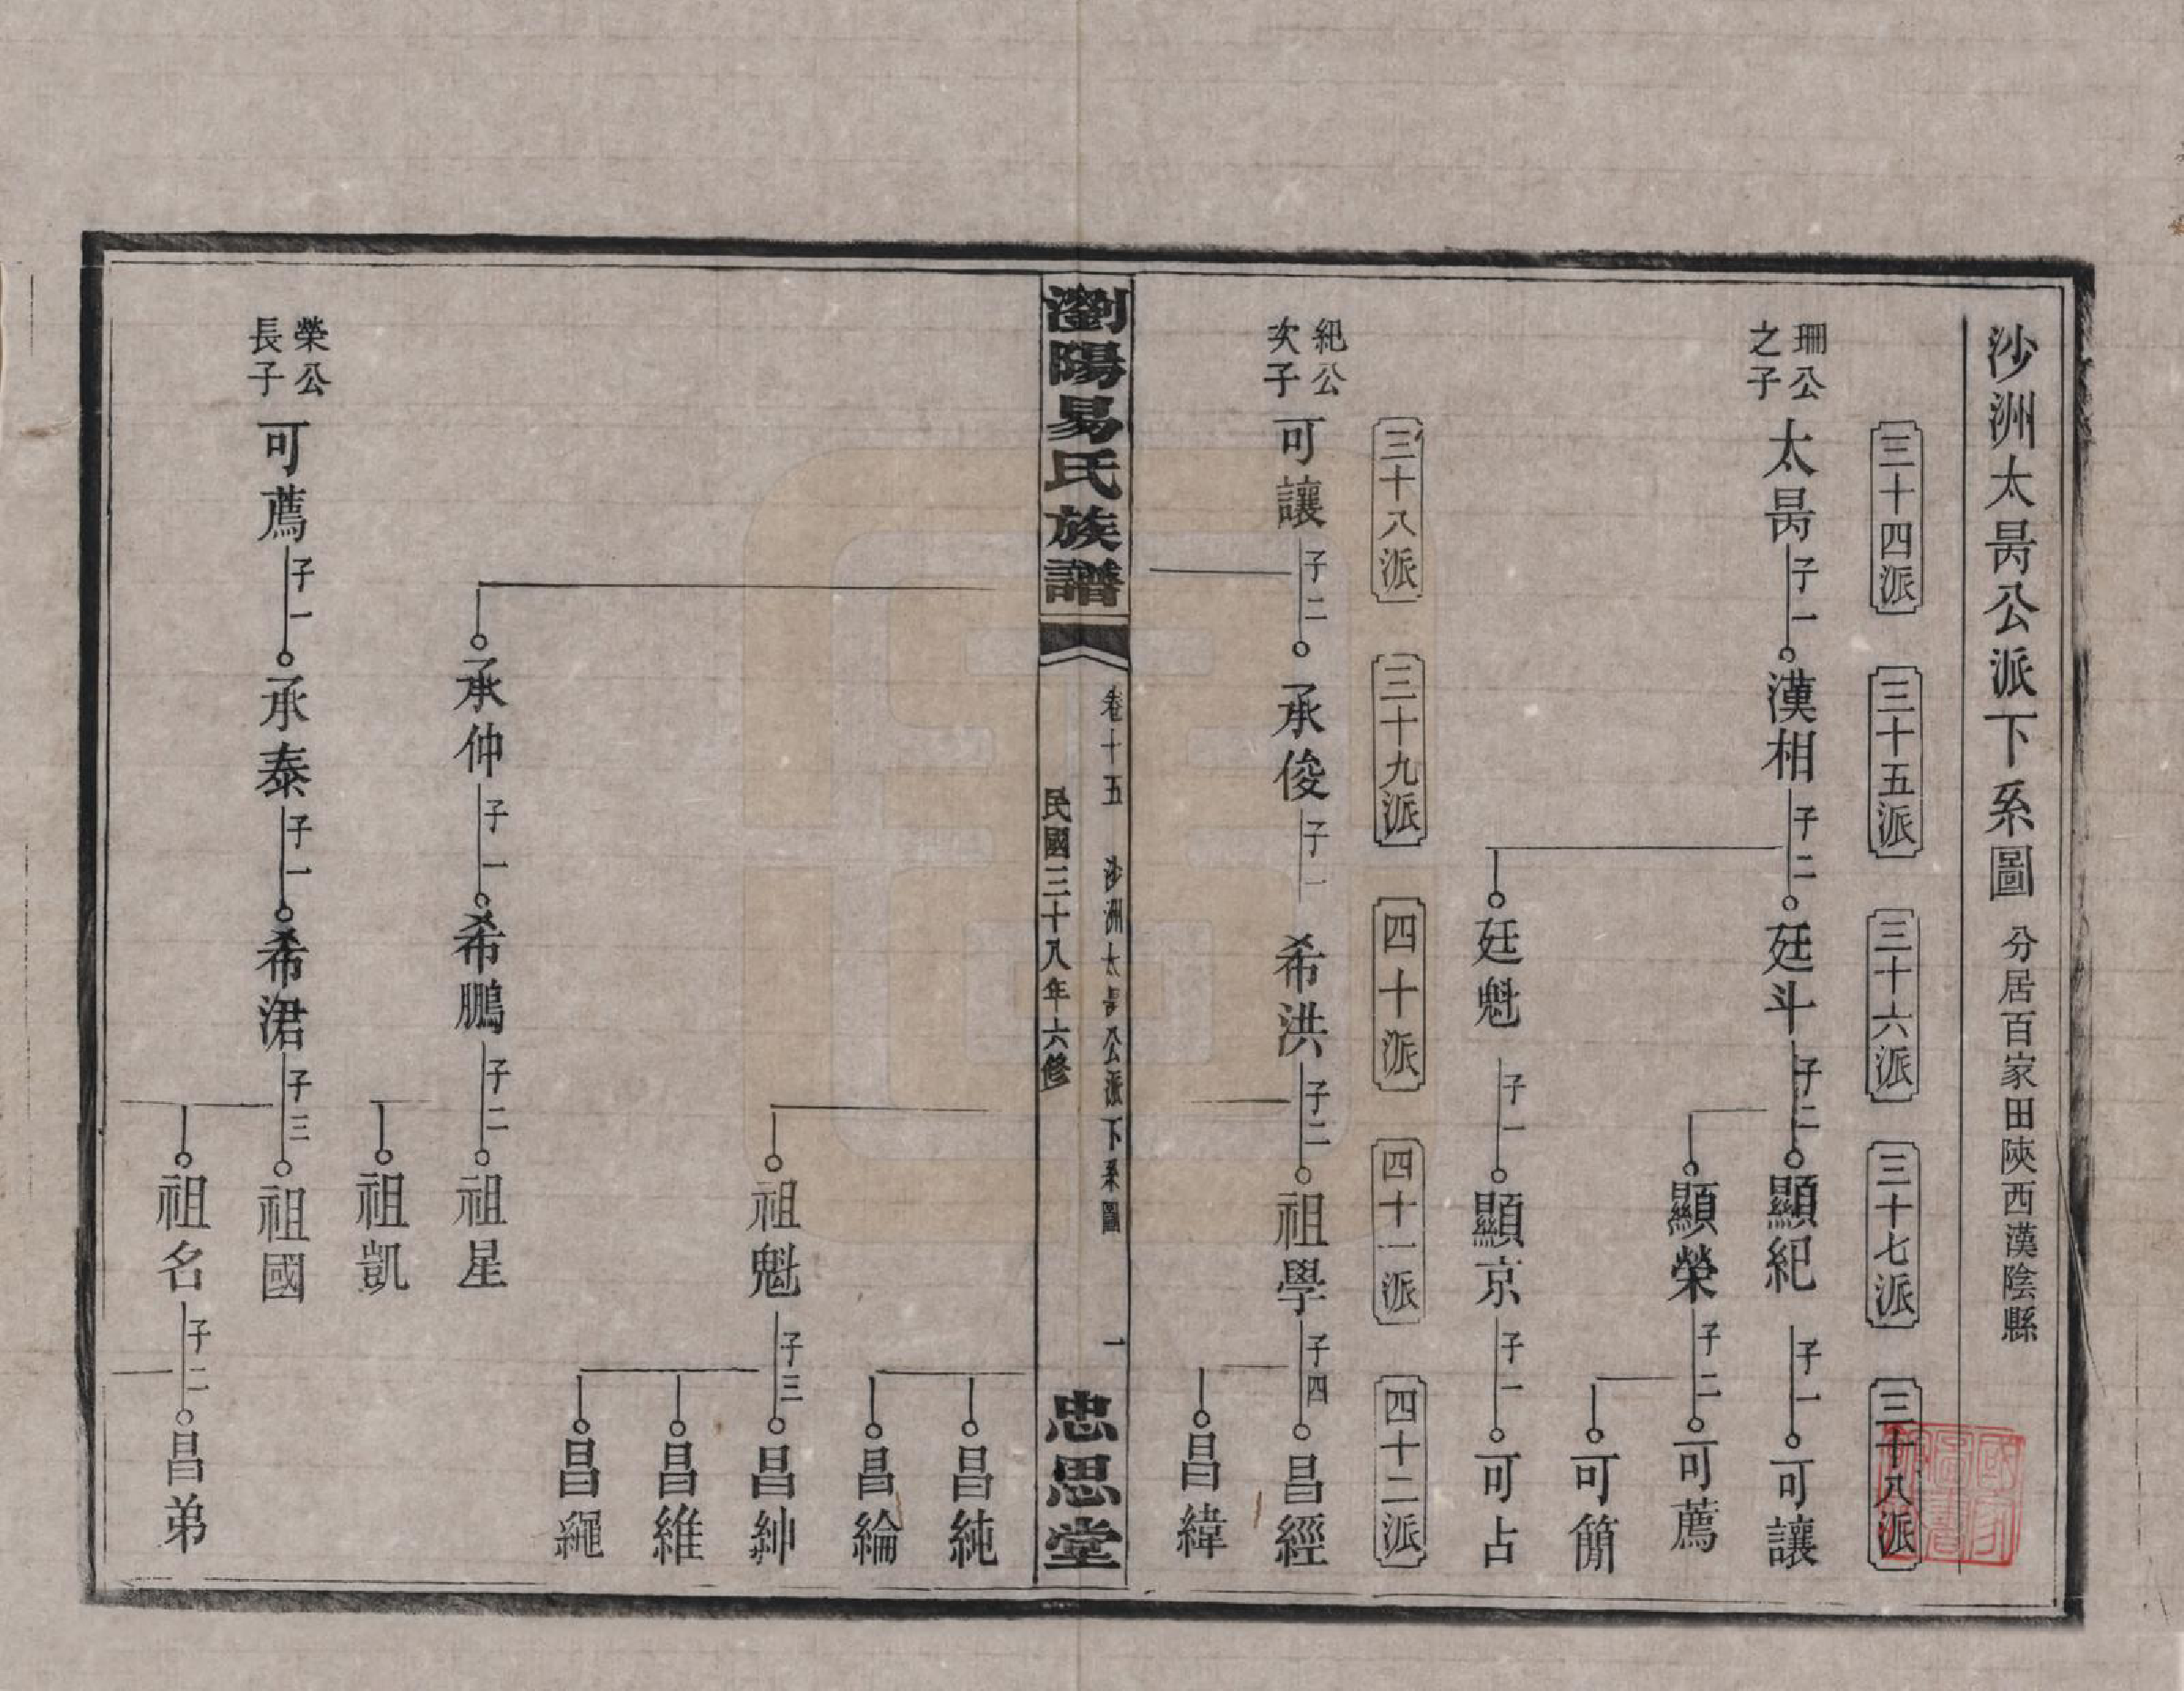 沙洲太昺公派下系圖 分居百家田陝西漢陰縣
三十四派 三十五派 三十六派 三十七派 三十八派
珊公之子 太昺 子一 漢相 子二 廷斗 子二 顯紀 子一 可讓
顯榮 子二 可薦
可簡
廷魁 子一 顯京 子一 可占
三十八派 三十九派 四十派 四十一派 四十二派
紀公次子 可讓 子二 承俊 子一 希洪 子二 祖學 子四 昌經
昌緯
瀏陽易氏族譜 卷十五 沙洲太昺公派下系圖 一 忠思堂
民國三十八年六修
昌純
昌綸
祖魁 子三 昌紳
昌維
昌繩
承仲 子一 希鵬 子二 祖星
祖凱
榮公長子 可薦 子一 承泰 子一 希涒 子三 祖國
祖名 子二 昌弟